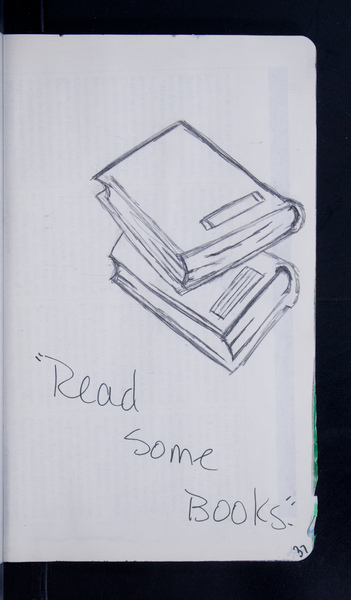 "Read
Some
Books."
37